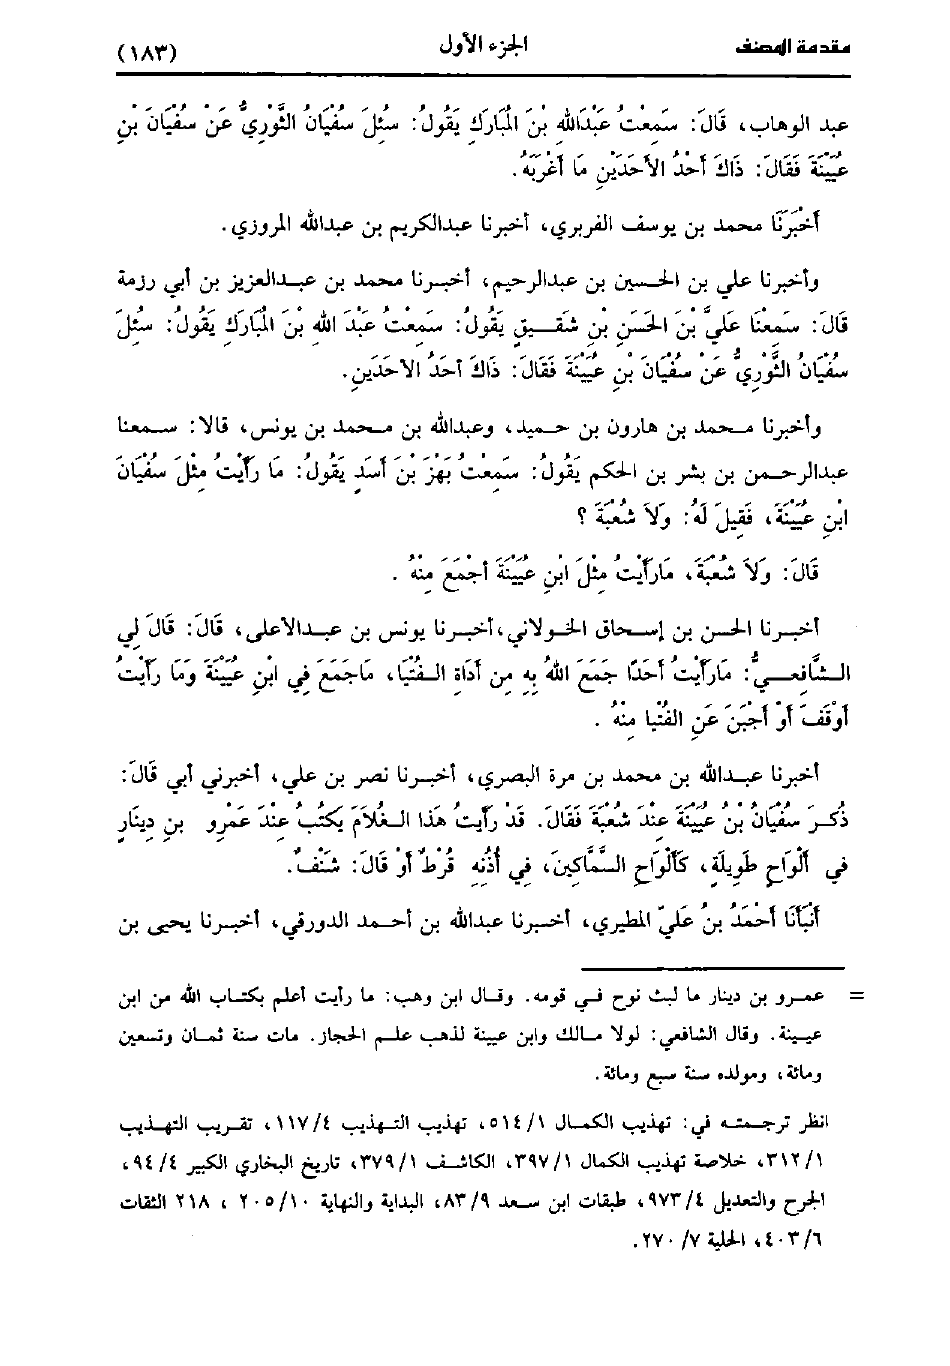 مقدمة المصنف الجزء الأول (١٨٣)
عبد الوهاب، قَالَ: سَمِعْتُ عَبْدَالله بْنَ الْمُبَارَكِ يَقُولُ: سُئِلَ سُفْيَانَ الثَّوْرِيُّ عَنْ سُفْيَانَ بْنِ
عُيَيْنَةَ فَقَالَ: ذَاكَ أَحَدُ الأَحَدَيْنِ مَا أَغْرَبَهُ.
أَخْبَرَنَا محمد بن يوسف الفربري، أخبرنا عبدالكريم بن عبدالله المروزي.
وأخبرنا علي بن الحسين بن عبدالرحيم، أخبرنا محمد بن عبدالعزيز بن أبي رزمة
قَالَ: سَمِعْنَا عَلِيَّ بْنَ الحَسَنِ بْنِ شَقِيقٍ يَقُولُ: سَمِعْتُ عَبْدَ اللهِ بْنَ الْمُبَارَكِ يَقُولُ: سُئِلَ
سُفْيَانَ الثَّوْرِيُّ عَنْ سُفْيَانَ بْنِ عُيَيْنَةَ فَقَالَ: ذَاكَ أَحَدُ الأَحَدَيْنِ.
وأخبرنا محمد بن هارون بن حميد، وعبدالله بن محمد بن يونس، قالا: سمعنا
عبدالرحمن بن بشر بن الحكم يَقُولُ: سَمِعْتُ بَهْزَ بْنَ أَسَدٍ يَقُولُ: مَا رَأَيْتُ مِثْلَ سُفْيَانَ
ابْنِ عُيَيْنَةَ، فَقِيلَ لَهُ: وَلاَ شُعْبَةَ ؟
قَالَ: وَلاَ شُعْبَةَ، مَارَأَيْتُ مِثْلَ ابْنِ عُيَيْنَةَ أَجْمَعَ مِنْهُ .
أخبرنا الحسن بن إسحاق الخولاني، أخبرنا يونس بن عبدالأعلى، قَالَ: قَالَ لِي
الشَّافِعِيُّ: مَارَأَيْتُ أَحَدًا جَمَعَ اللهُ بِهِ مِن أَدَاةِ الفُتْيَا، مَاجَمَعَ فِي ابْنِ عُيَيْنَةَ وَمَا رَأَيْتُ
أَوْقَفَ أَوْ أَجْبَنَ عَنِ الفُتْيَا مِنْهُ .
أخبرنا عبدالله بن محمد بن مرة البصري، أخبرنا نصر بن علي، أخبرني أبي قَالَ:
ذُكِرَ سُفْيَانُ بْنُ عُيَيْنَةَ عِنْدَ شُعْبَةَ فَقَالَ. قَدْ رَأَيْتُ هَذَا الغُلاَمَ يَكْتُبُ عِنْدَ عَمْرِو بنِ دِينَارٍ
فِي أَلْوَاحٍ طَوِيلَةٍ، كَأَلْوَاحِ السَّمَّاكِينَ، فِي أُذُنِهِ قُرْطٌ أَوْ قَالَ: شَنْفٌ.
أَنْبَأَنَا أَحْمَدُ بنُ عَلِيّ المطيري، أخبرنا عبدالله بن أحمد الدورقي، أخبرنا يحيى بن
= عمرو بن دينار ما لبث نوح في قومه. وقال ابن وهب: ما رأيت أعلم بكتاب الله من ابن
عيينة. وقال الشافعي: لولا مالك وابن عيينة لذهب علم الحجاز. مات سنة ثمان وتسعين
ومائة، ومولده سنة سبع ومائة.
انظر ترجمته في: تهذيب الكمال ٥١٤/١، تهذيب التهذيب ١١٧/٤، تقريب التهذيب
٣١٢/١، خلاصة تهذيب الكمال ٣٩٧/١، الكاشف ٣٧٩/١، تاريخ البخاري الكبير ٩٤/٤،
الجرح والتعديل ٩٧٣/٤، طبقات ابن سعد ٨٣/٩، البداية والنهاية ٢٠٥/١٠ ، ٢١٨ الثقات
٤٠٣/٦، الحلية ٢٧٠/٧.